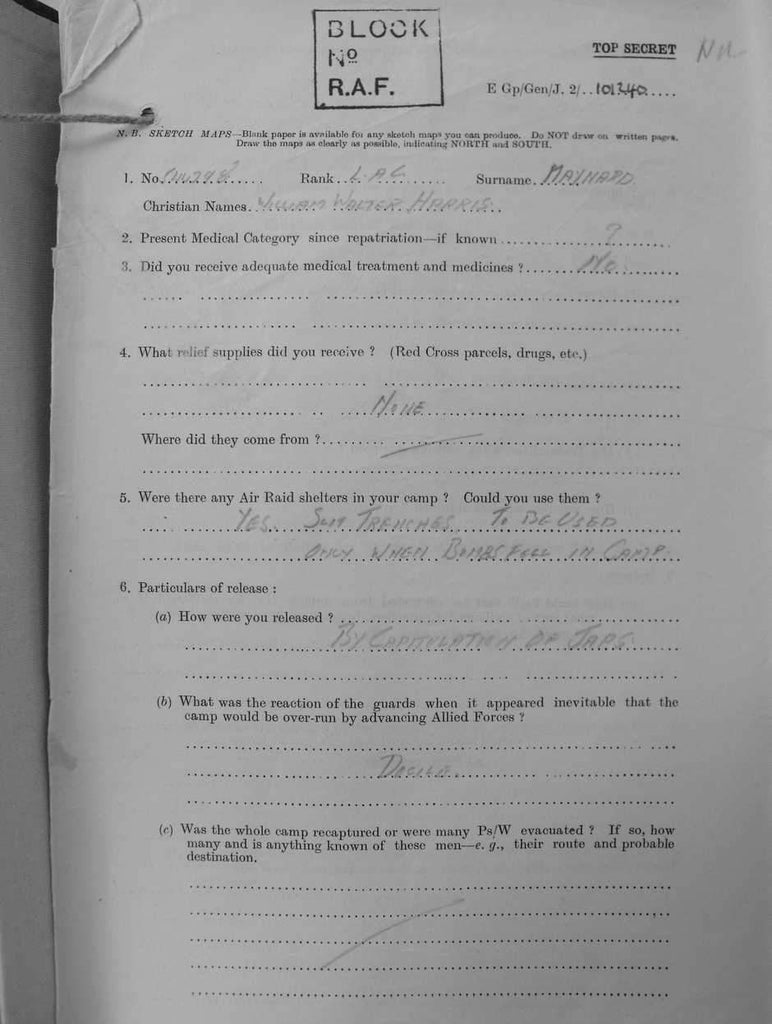 BLOCK
No
R.A.F.
TOP SECRET
E Gp/Gen/J. 2/..101240....
N. B. SKETCH MAPS—Blank paper is available for any sketch maps you can produce. Do NOT draw on written pages.
Draw the maps as clearly as possible, indicating NORTH and SOUTH.
1. No. Rank..L.A.C...... Surname. MAYNARD
Christian Names. WILLIAM WALTER HARRIS
2. Present Medical Category since repatriation—if known ........?........
3. Did you receive adequate medical treatment and medicines ?........No........
4. What relief supplies did you receive ? (Red Cross parcels, drugs, etc.)
NONE
Where did they come from ?
5. Were there any Air Raid shelters in your camp ? Could you use them ?
YES. SLIT TRENCHES. TO BE USED
ONLY WHEN BOMBS FELL IN CAMP.
6. Particulars of release :
(a) How were you released ?
BY CAPITULATION OF JAPS.
(b) What was the reaction of the guards when it appeared inevitable that the
camp would be over-run by advancing Allied Forces ?
DOCILE.
(c) Was the whole camp recaptured or were many Ps/W evacuated ? If so, how
many and is anything known of these men—e. g., their route and probable
destination.